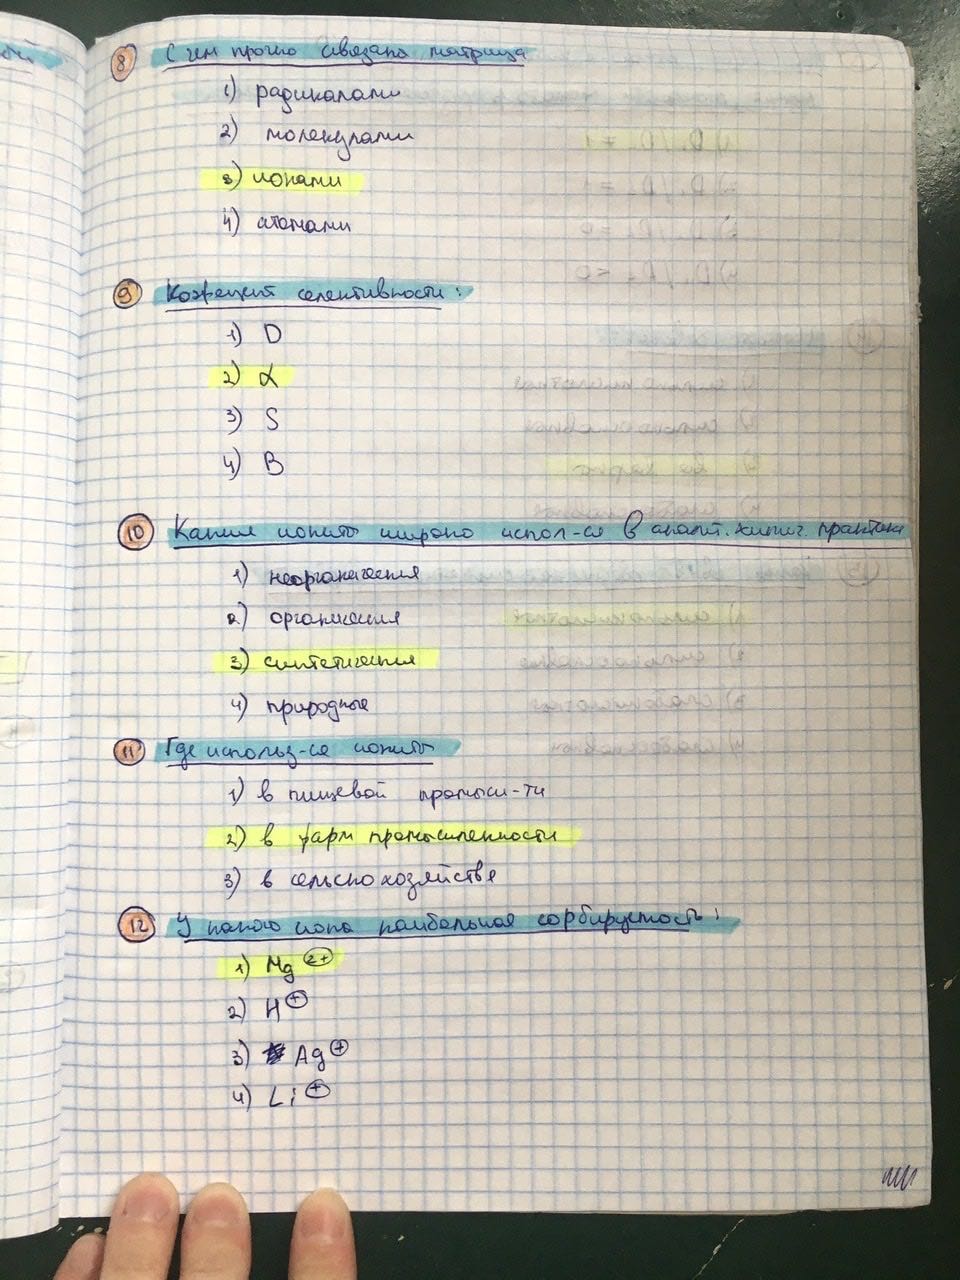 8 С чем прочно связана матрица
1) радикалами
2) молекулами
3) ионами
4) атомами
9 Коэфециент селективности:
1) D
2) α
3) S
4) B
10 Какие иониты широко испол-ся в аналит. химич. практике
1) неорганические
2) органические
3) синтетические
4) природные
11 Где использ-ся иониты
1) в пищевой промышл-ти
2) в фарм промышленности
3) в сельско хозяйстве
12 У какого иона наибольшая сорбируемость:
1) Mg 2+
2) H +
3) Ag +
4) Li +